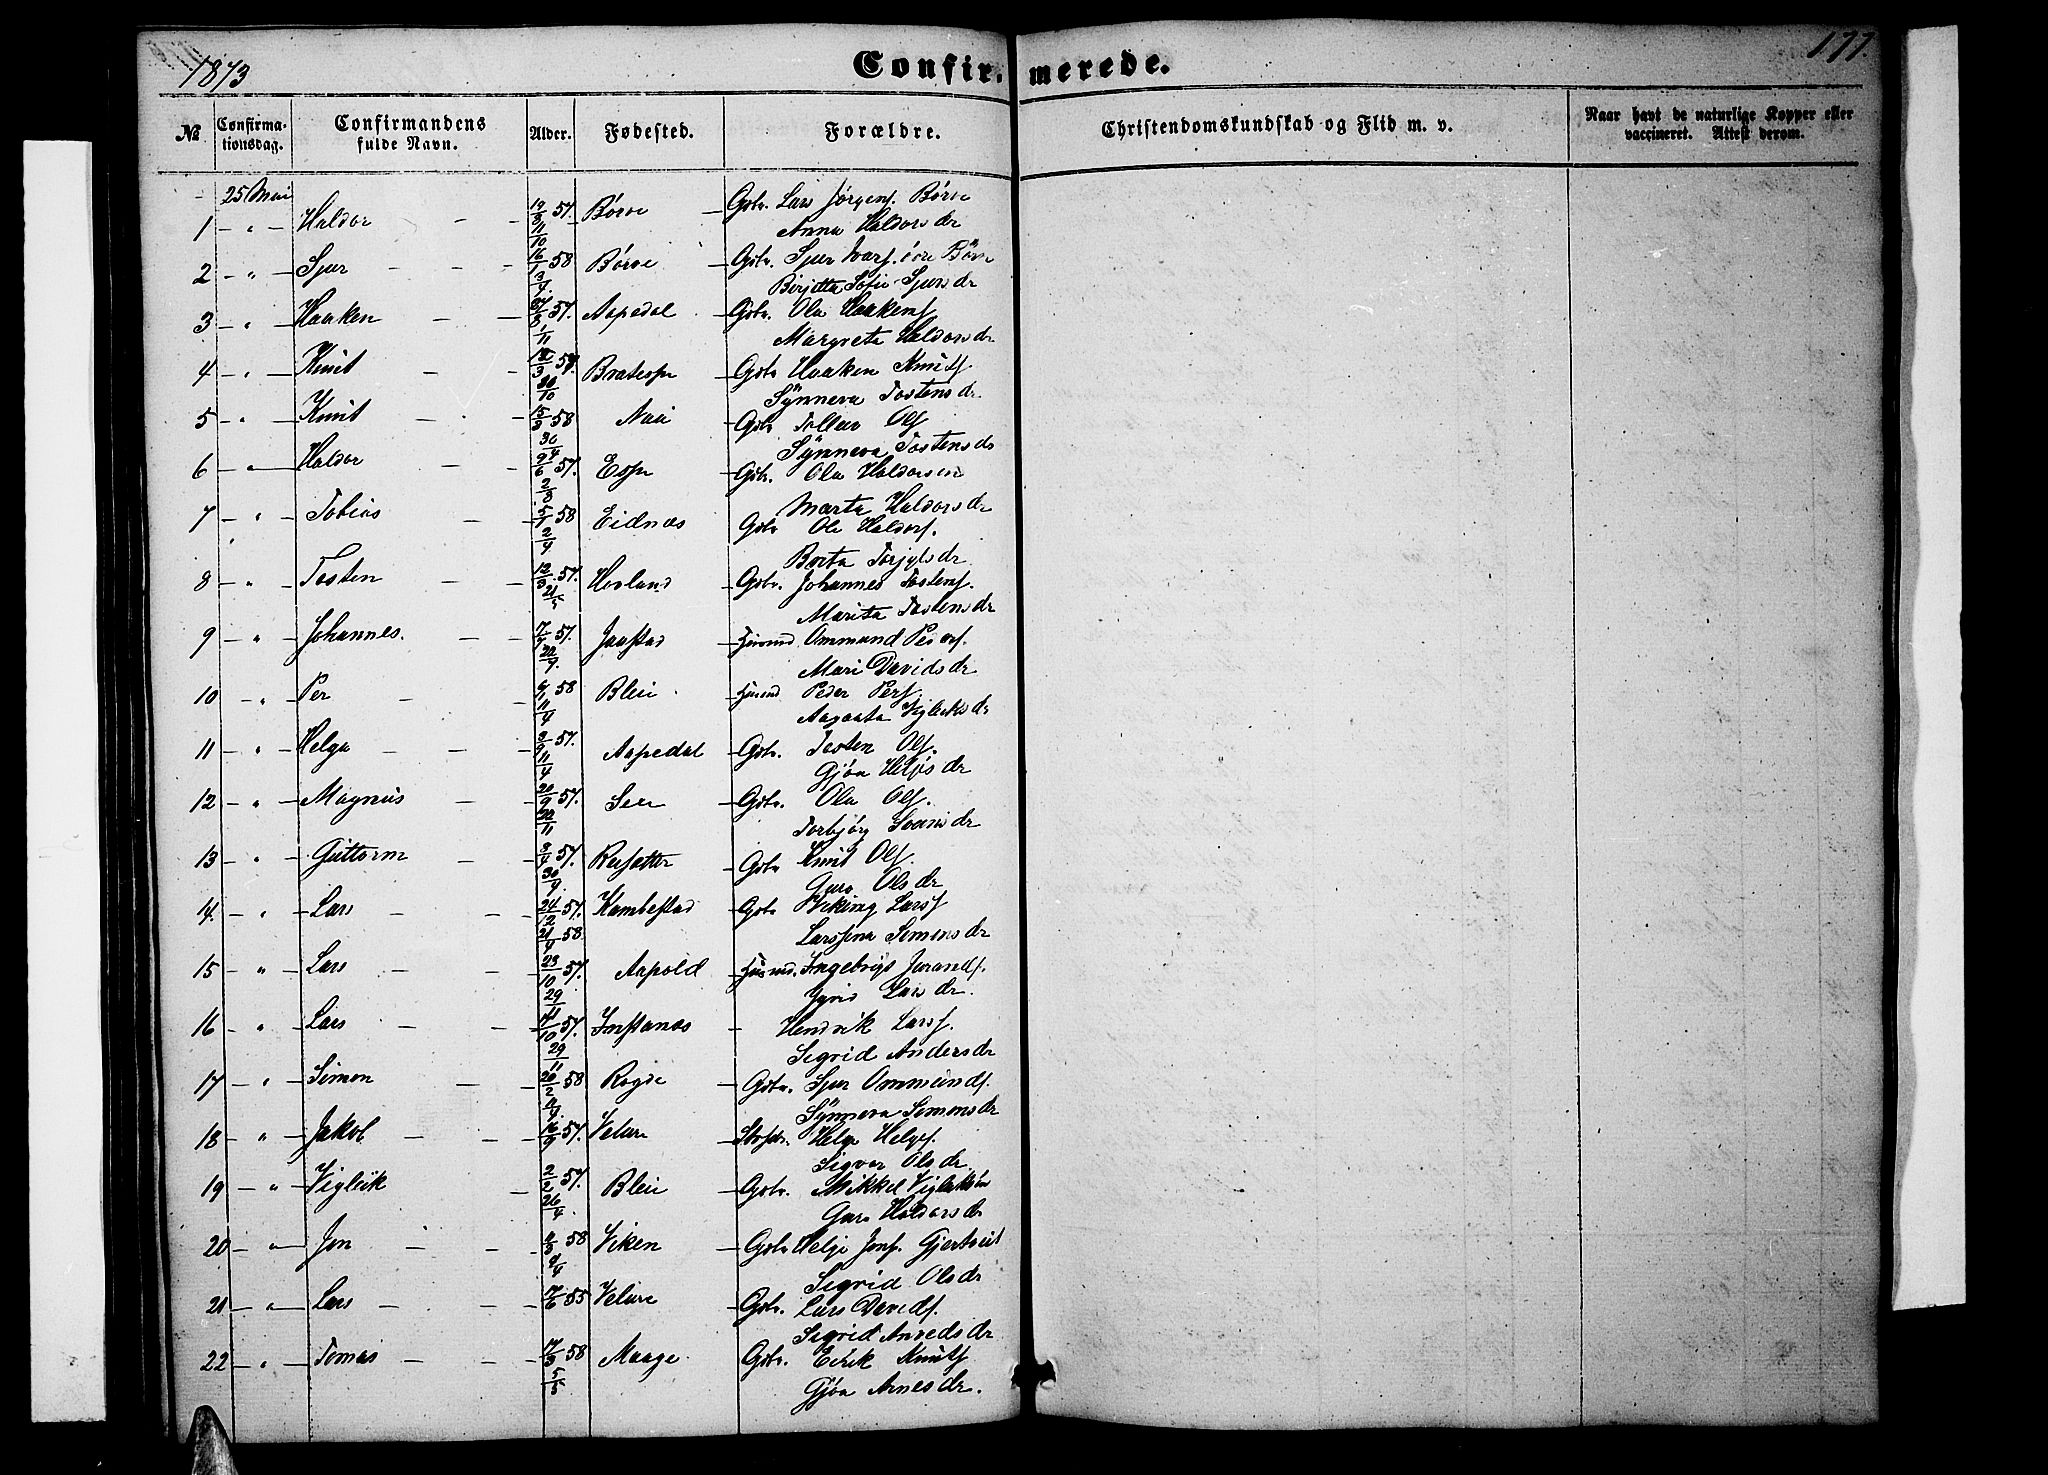 1873
Confirmerede.
177.
№
Confirmationsdag.
Confirmandens fulde Navn.
Alder.
Fødested.
Forældre.
Christendomskundskab og Flid m. v.
Naar havt de naturlige Kopper eller vaccineret. Attest derom.
25 Mai
1 - " - Haldor - - 57. Børve - Gbr. Lars Jørgens. Børve
Anna Haldorsdr
2 - " - Sjur - - - 16/1 58 Børve - Gbr. Sjur Ivars. Børve
Birjetta Sofie Sjursdr
3 - " - Haaken - - 57. Aapedal - Gbr. Ola Haakens.
Margreta Haldorsdr
4 - " - Knut - - Bratespe - Gbr Haaken Knuts.
Synneva Tostensdr.
5 - " - Knut - - 15/3 58 Naa - Gbr Tollev Ols.
30/4 Synneva Tostensdr
6 - " - Haldor - - 57. Espe - Gbr. Ola Haldorsen
Marta Haldorsdr
7 - " - Tobias - - 5/1 58 Eidnæs Gbr Ole Haldors.
2/4 Brita Torjylsdr
8 - " - Tosten - - 12/3 57. Hovland - Gbr. Johannes Tostens.
21/5 Marita Tostensdr
9 - " - Johannes. - - 57. Jaastad - Husmd Ommund Peders.
Mari Davidsdr
10 - " - Per - - 58 Bleie - Husmd Peder Pers.
11/4 Aagaata Vigleiksdr
11 - " - Helge - - - 57. Aapedal - Gbr. Tosten Ols.
11/4 Gjøa Helgesdr
12 - " - Magnus - - 20/9 57. Sexe - Gbr. Ola Ols.
22/11 Torbjørg Svensdr
13 - " - Guttorm - - 3/4 57. Reisæter - Gbr Knut Ols.
Guro Olsdr
14. - " - Lars - - 24/12 57. Kambestad - Gbr Viking Lars.
21/4 58. Larssina Simonsdr
15 - " - Lars - - 23/10 57. Aapold - Husmd. Ingebrigt Jorands.
Jyris Larsdr.
16 - " - Lars - - 57. Instanes - Hendrik Lars.
29/11 Sigrid Andersdr
17 - " - Simon - - 20/2 58 Rogde - Gbr. Sjur Ommunds.
Synneva Simonsdr
18 - " - Jakob - - 16/9 57. Velure - Helge Helges.
Sigvor Olsdr
19 - " - Vigleik - 2/2 57. Bleie - Gbr. Mikkel Vigleiksen
26/4. Guro Haldorsdr
20 - " - Jon - - 58 Viken - Gbr Helge Jons. Gjertveit
Sigrid Olsdr
21 - " - Lars - - 55 Velure - Gbr. Lars Davids.
Sigrid Anvedsdr
22 - " - Tomas - - 17/3 58 - Maage - Gbr. Eirik Knuts.
5/5 Gjøa Arnesdr.